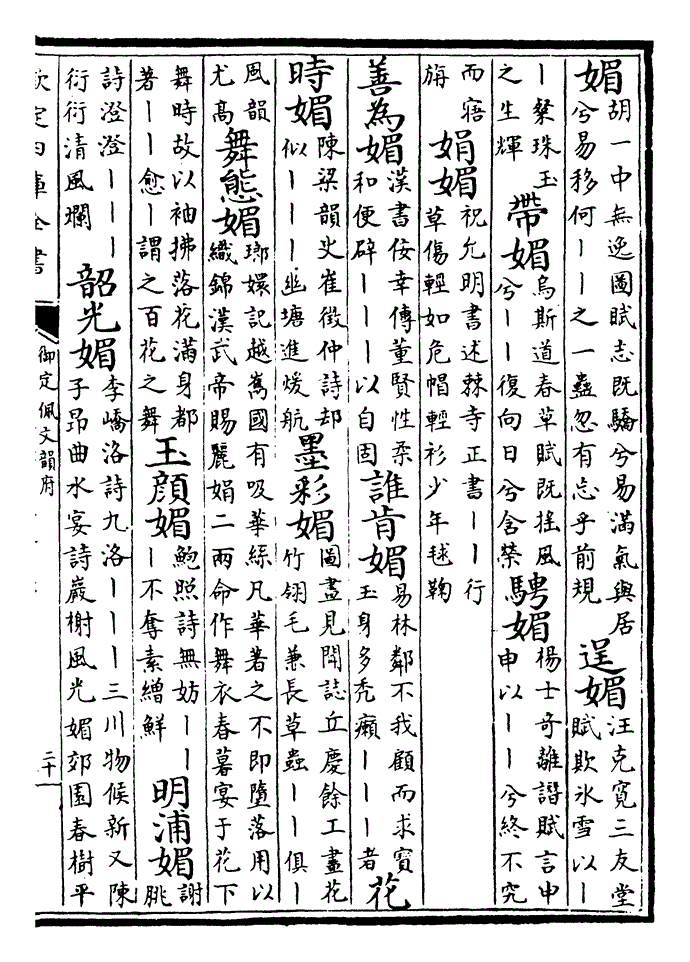 媚胡一中無逸圖賦志既驕兮易滿氣與居兮易移何丨丨之一蠱忽有忘乎前規逞媚汪克寛三友堂賦欺氷雪以丨
丨粲珠玉之生輝帶媚烏斯道春草賦既搖風兮丨丨復向日兮含榮騁媚楊士奇離譖賦言申申以丨丨兮終不究
而寤旃娟媚祝允明書述棘寺正書丨丨行草傷輕如危帽輕衫少年毬鞠
善為媚漢書佞幸傳董賢性柔和便辟丨丨丨以自固誰肯媚易林鄰不我顧而求寳玉身多禿癩丨丨丨者花
時媚陳梁韻史崔徴仲詩却似丨丨丨幽塘進煖航墨彩媚圖畫見聞誌丘慶餘工畫花竹翎毛兼長草蟲丨丨俱丨
風韻尤髙舞態媚瑯嬛記越嶲國有吸華絲凡華著之不即墮落用以織錦漢武帝賜麗娟二兩命作舞衣春暮宴于花下
舞時故以袖拂落花滿身都著丨丨愈丨謂之百花之舞玉顔媚鮑照詩無妨丨丨丨不奪素繒鮮明浦媚謝朓
詩澄澄丨丨丨衍衍清風爛韶光媚李嶠洛詩九洛丨丨丨三川物候新又陳子昂曲水宴詩巖榭風光媚郊園春樹平
欽定四庫全書
御定佩文韻府
二十